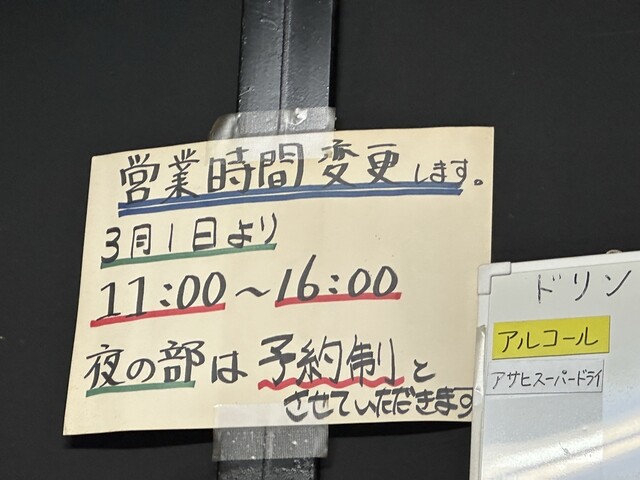 営業時間変更します。
3月1日より
11:00～16:00
夜の部は予約制と
させていただきます
ドリン
アルコール
アサヒスーパードライ